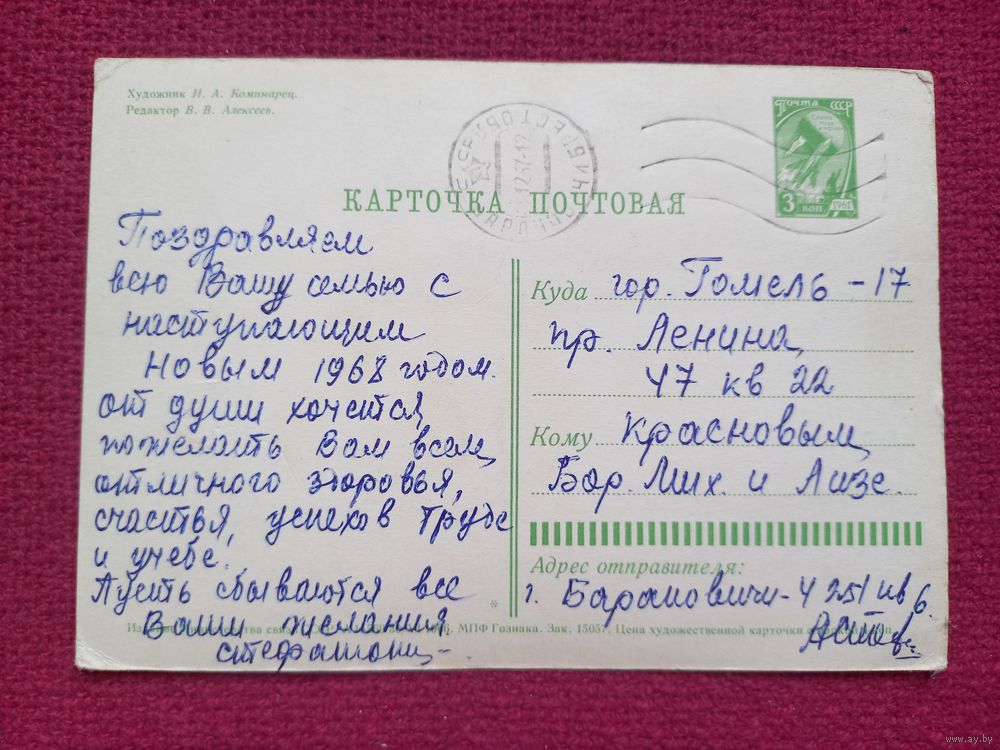 Художник И. А. Коминарец.
Редактор В. В. Алексеев.
Почта СССР
3 коп
1961
КАРТОЧКА ПОЧТОВАЯ
Поздравляем
всю Вашу семью с
наступающим
Новым 1968 годом.
от души хочется
пожелать Вам всем
отличного здоровья,
счастья, успехов труде
и учебе.
Пусть сбываются все
Ваши желания
Куда гор. Гомель - 17
пр. Ленина,
47 кв 22
Кому Красновым
Бор. Мих. и Лизе.
Адрес отправителя:
г. Барановичи-4 251 кв 6.
МПФ Гознака. Зак. 15057. Цена художественной карточки
www.ay.by